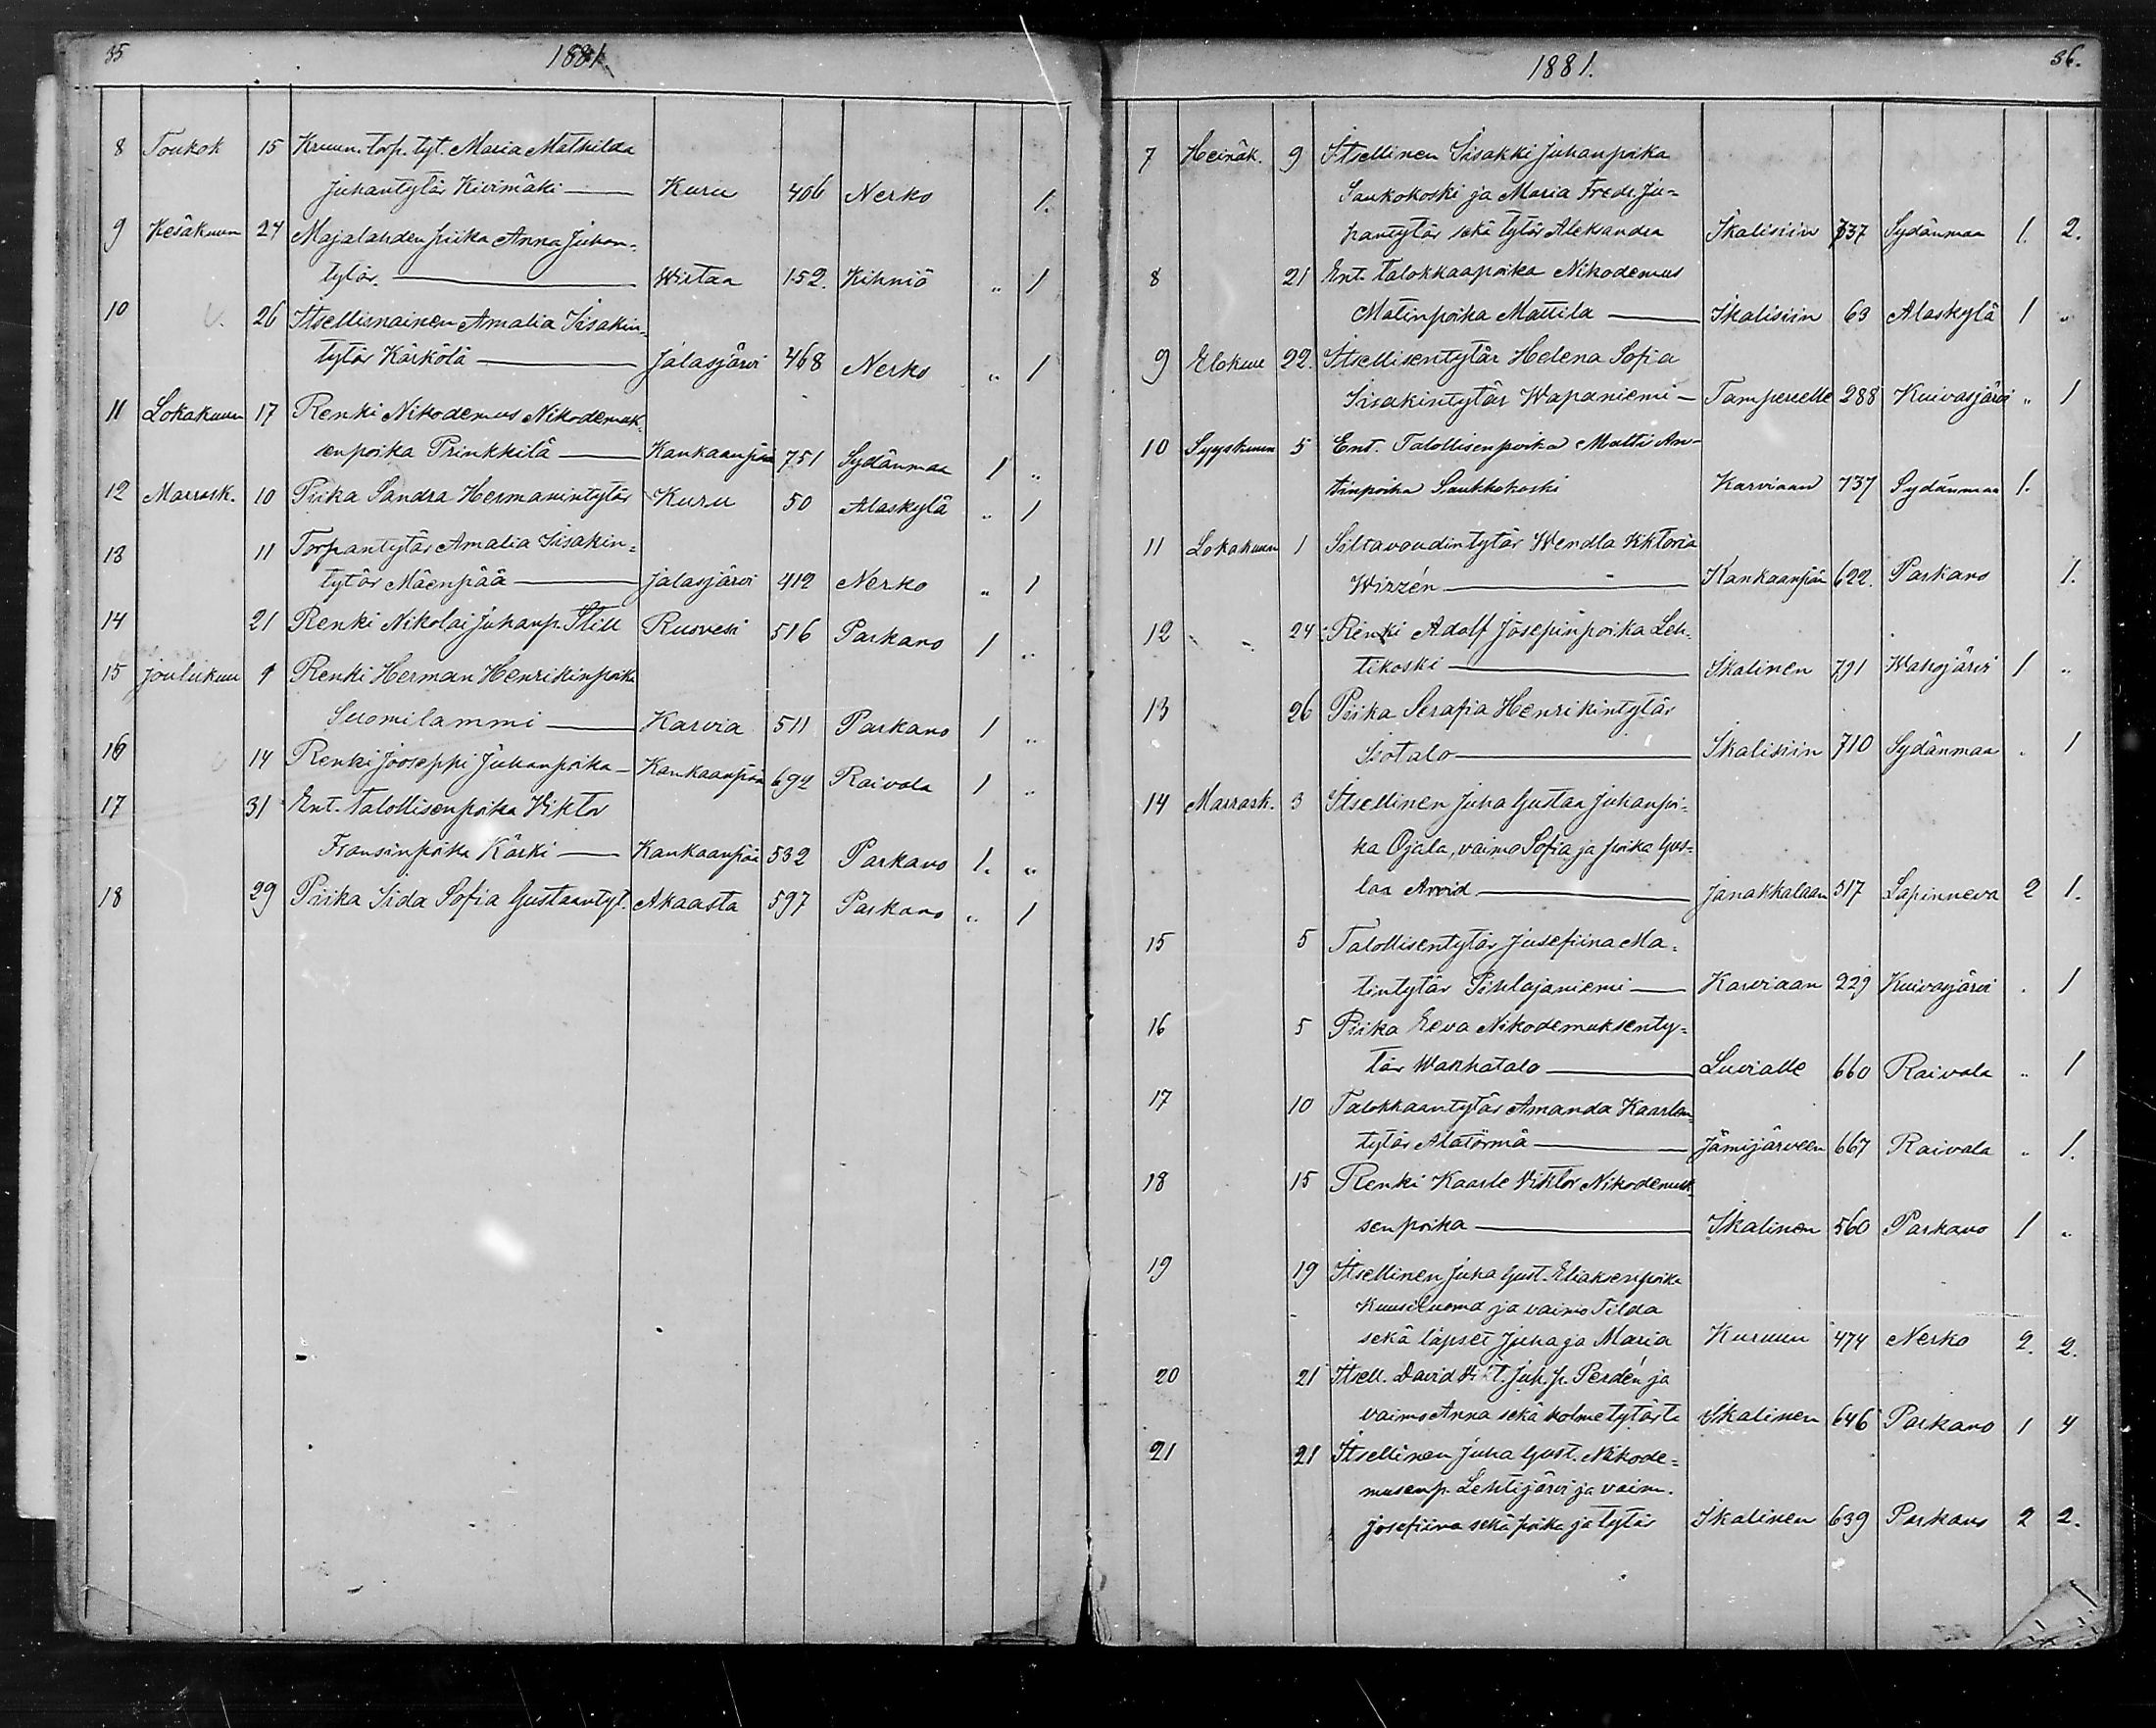 35
1881
8 Toukok 15 Kruun. torp. tyt. Maria Mathilda
Juhantytär Kivimäki — Kuru 406 Nerko 1.
9 Kesäkuun 24 Majalahden piika Anna Juhan-
tytär. — Wirtaa 152. Kihniö „ 1
10 26 Itsellisnainen Amalia Iisakin-
tytär Kärkölä — Jalasjärvi 468 Nerko „ 1
11 Lokakuun 17 Renki Nikodemus Nikodemuk-
senpoika Prinkkilä — Kankaanpää 751 Sydänmaa 1 „
12 Marrask. 10 Piika Sandra Hermanintytär Kuru 50 Alaskylä „ 1
13 11 Torpantytär Amalia Iisakin=
tytär Mäenpää — Jalasjärvi 412 Nerko „ 1
14 21 Renki Nikolai Juhanp. Still Ruovesi 516 Parkano 1 „
15 Joulukuu 9 Renki Herman Henrikinpoika
Suomilammi — Karvia 511 Parkano 1 „
16 14 Renki Jooseppi Juhanpoika — Kankaanpää 692 Raivala 1 „
17 31 Ent. talollisenpoika Viktor
Fransinpoika Kärki — Kankaanpää 532 Parkano 1. „
18 29 Piika Iida Sofia Gustaantyt. Akaasta 597 Parkano „ 1
1881.
36.
7 Heinäk. 9 Itsellinen Iisakki Juhanpoika
Saukokoski ja Maria Fredr. Ju=
hantytär sekä tytär Aleksandra Ikalisiin 737 Sydänmaa 1. 2.
8 21 Ent. talokkaapoika Nikodemus
Matinpoika Mattila — Ikalisiin 63 Alaskylä 1 „
9 Elokuu 22. Itsellisentytär Helena Sofia
Iisakintytär Wapaniemi — Tampereelle 288 Kuivasjärvi „ 1
10 Syyskuun 5 Ent. Talollisenpoika Matti An-
tinpoika Saukkokoski Karviaan 737 Sydänmaa 1.
11 Lokakuun 1 Siltavoudintytär Wendla Viktoria
Wirzén — Kankaanpää 622. Parkano 1.
12 24 Renki Adolf Josepinpoika Leh-
tikoski — Ikalinen 791 Wahojärvi 1 „
13 26 Piika Serafia Henrikintytär
Isotalo — Ikalisiin 710 Sydänmaa „ 1
14 Marrask. 3 Itsellinen Juha Gustaa Juhanpoi-
ka Ojala, vaimo Sofia ja poika Gus=
taa Arvid — Janakkalaan 317 Lapinneva 2 1.
15 5 Talollisentytär Josefiina Ma=
tintytär Pihlajaniemi — Karviaan 229 Kuivasjärvi . 1
16 5 Piika Eeva Nikodemuksenty=
tär Wanhatalo — Luvialle 660 Raivala „ 1
17 10 Talokkaantytär Amanda Kaarlen
tytär Alatörmä — Jämijärveen 667 Raivala „ 1.
18 15 Renki Kaarle Viktor Nikodemuk
senpoika — Ikalinen 560 Parkano 1 „
19 19 Itsellinen Juha Gust. Eliaksenpoika
Kuusiluoma ja vaimo Tilda
sekä lapset Juha ja Maria Kuruun 474 Nerko 2. 2.
20 21 Itsell. David Vikt. Juh. p. Perdén ja
vaimo Anna sekä kolme tytärtä Ikalinen 646 Parkano 1 4
21 21 Itsellinen Juha Gust. Nikode=
musenp. Lehtijärvi ja vaim.
Josefiina sekä poika ja tytär Ikalinen 639 Parkano 2 2.